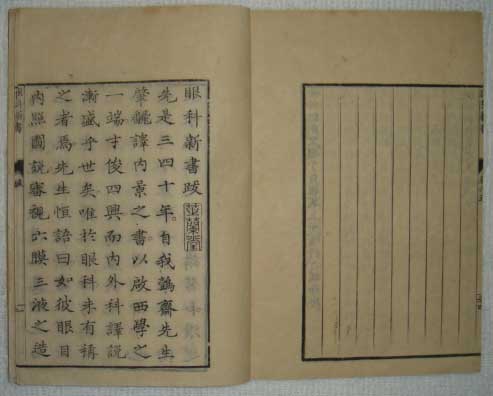 眼科新書跋 芝蘭堂
先是三四十年。自我鷧齋先生
肇飜譯内景之書以啟西學之
一端才俊四興而内外科譯説
漸盛乎世矣唯於眼科未有稱
之者焉先生恒語曰如彼眼目
内照圖説審視六膜三液之造
眼科新書 跋 一